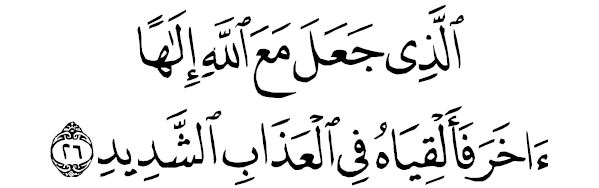 ٱلَّذِى جَعَلَ مَعَ ٱللَّهِ إِلَـٰهًا
ءَاخَرَ فَأَلْقِيَاهُ فِى ٱلْعَذَابِ ٱلشَّدِيدِ ٢٦